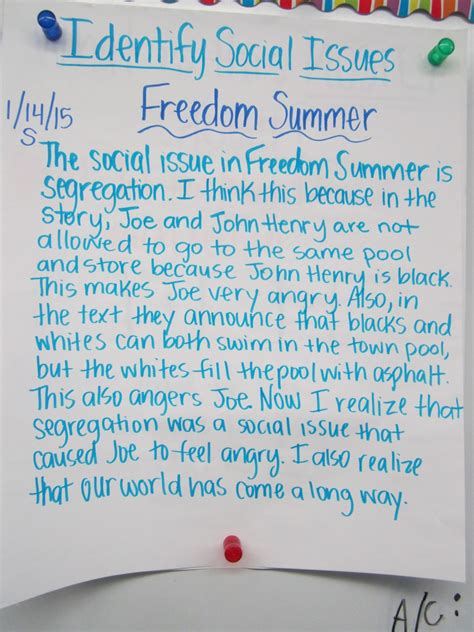 Identify Social Issues
Freedom Summer
1/14/15
S
The social issue in Freedom Summer is
segregation. I think this because in the
story, Joe and John Henry are not
allowed to go to the same pool
and store because John Henry is black.
This makes Joe very angry. Also, in
the text they announce that blacks and
whites can both swim in the town pool,
but the whites fill the pool with asphalt.
This also angers Joe. Now I realize that
segregation was a social issue that
caused Joe to feel angry. I also realize
that our world has come a long way.
A/C: